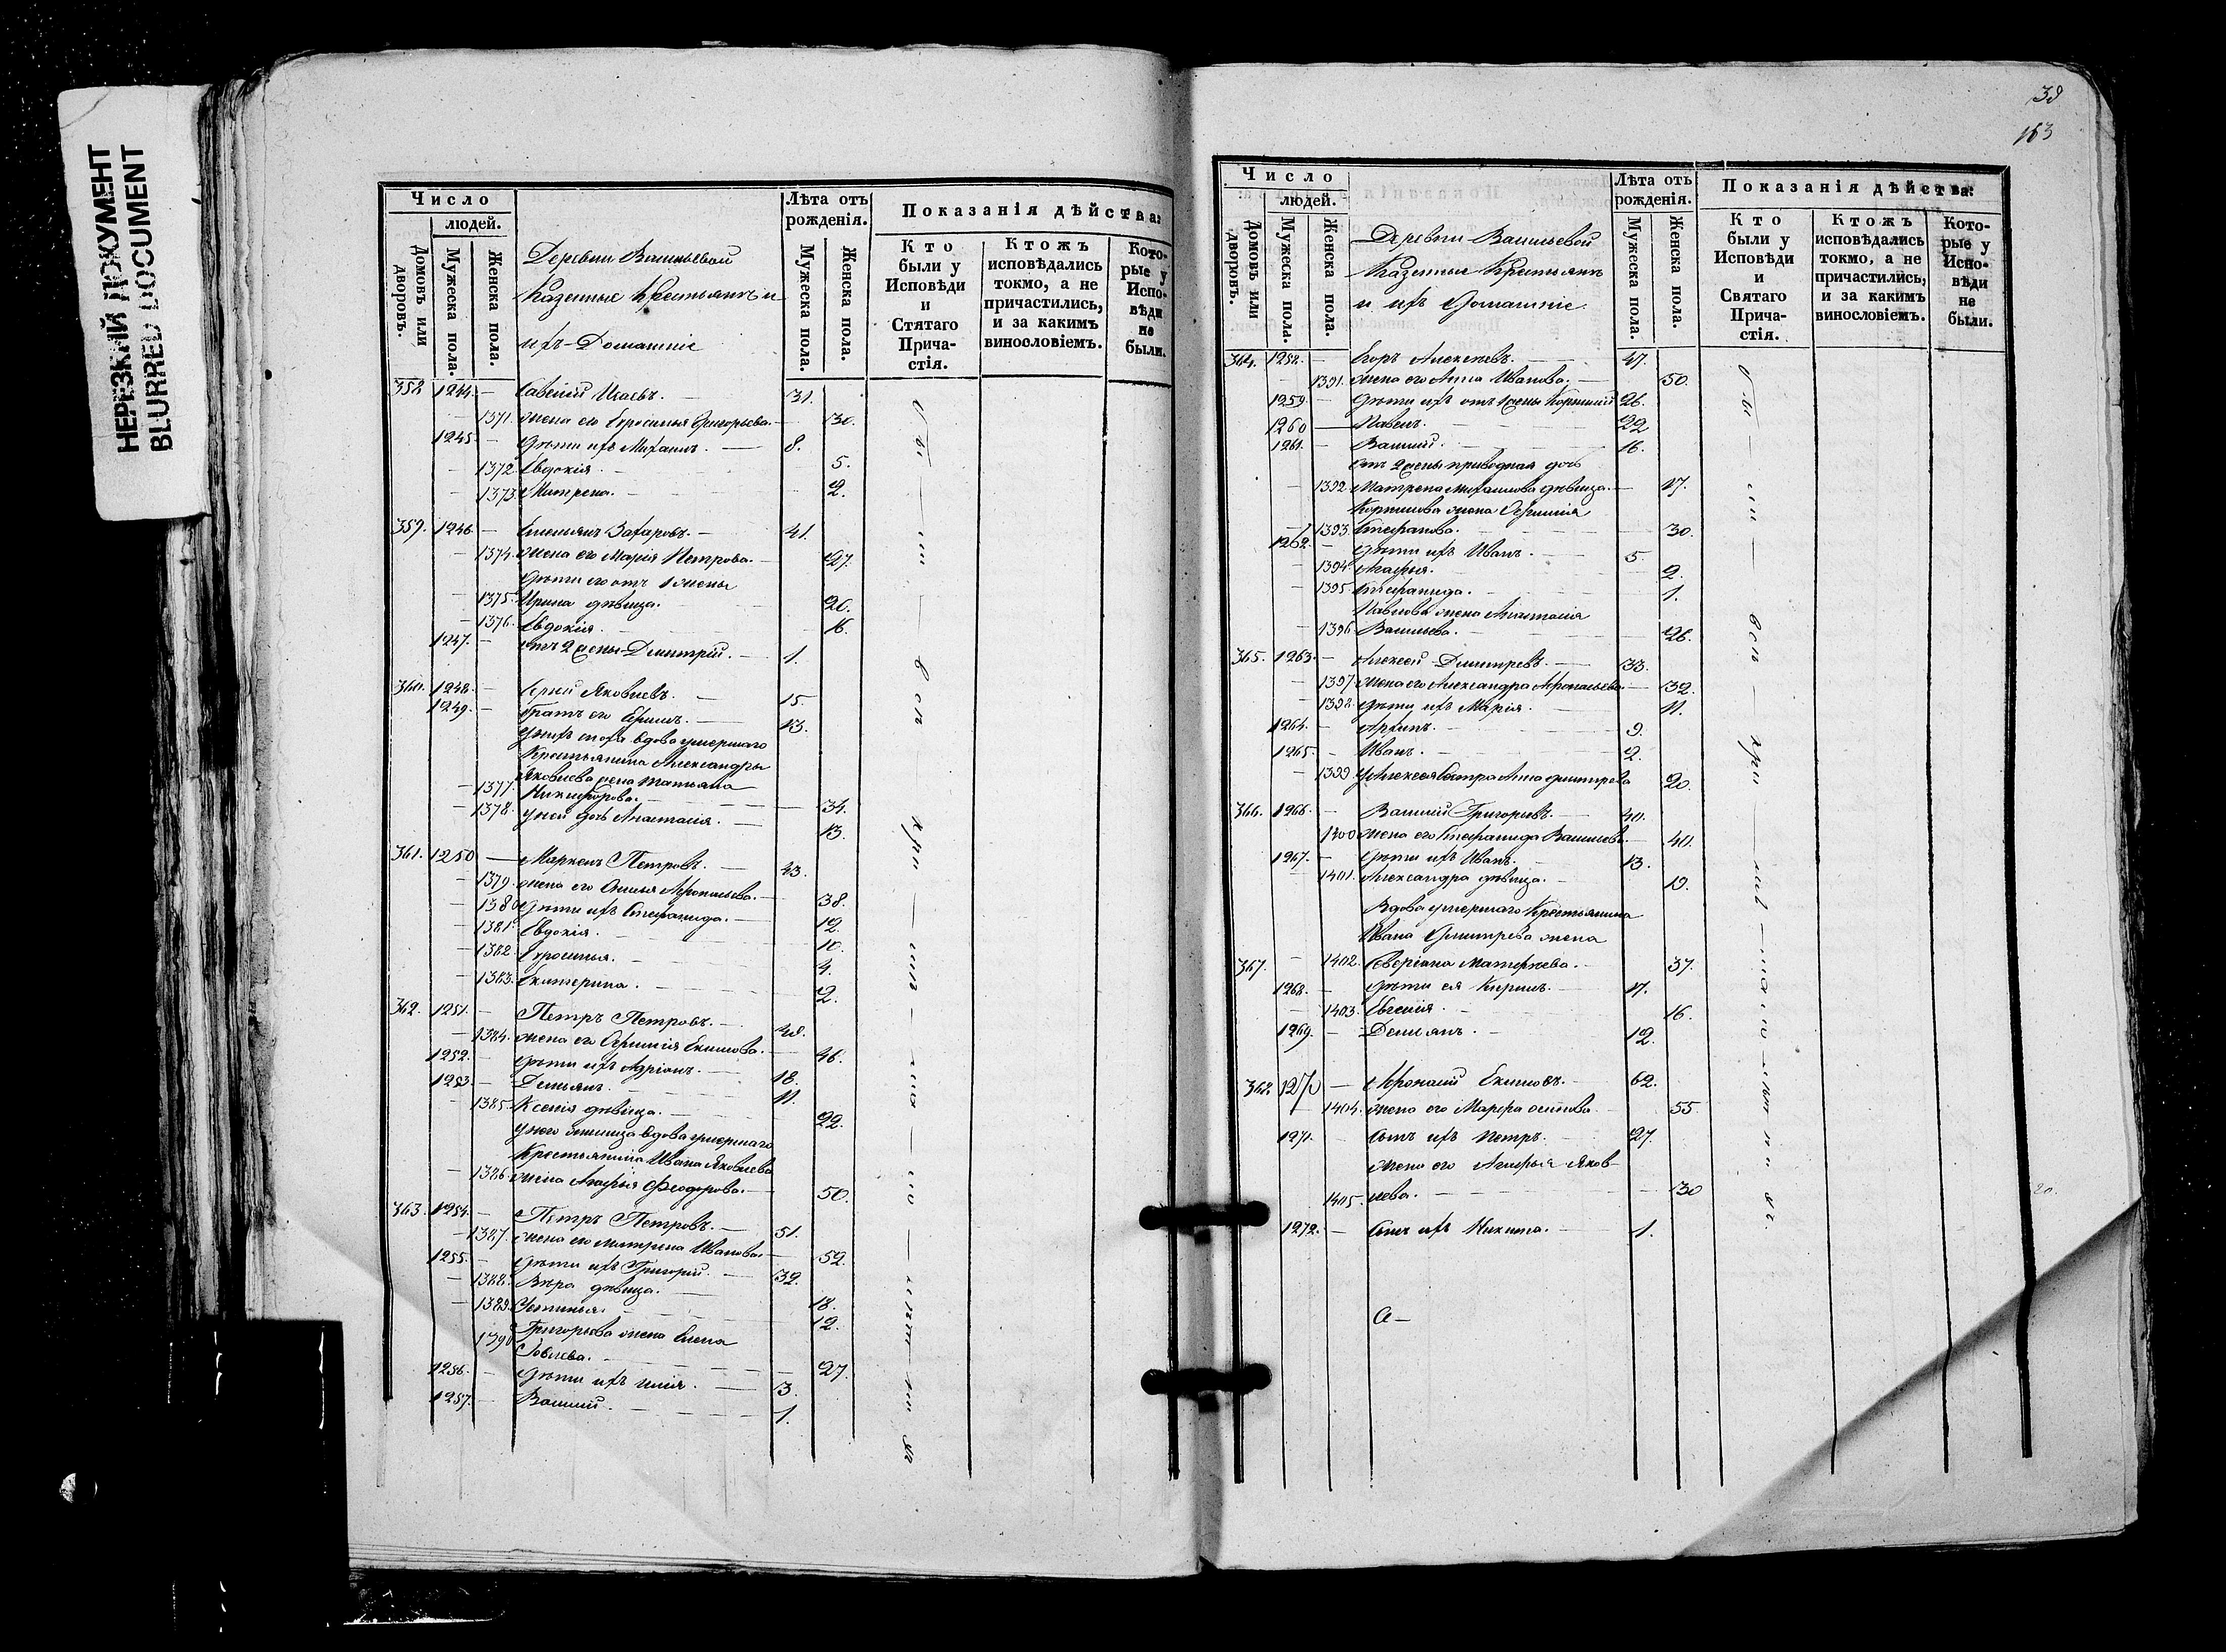 НЕРЕЗКИЙ ДОКУМЕНТ
BLURRED DOCUMENT
Число
людей.
Домовъ или дворовъ.
Мужеска пола.
Женска пола.
Деревни Васильевой
Казенные Крестьянъ и
ихъ Домашніе
Лѣта отъ рожденія.
Мужеска пола.
Женска пола.
Показанія дѣйства:
Кто были у Исповѣди и Стятаго Прича-стія.
Ктожъ исповѣдались токмо, а не причастились, и за какимъ винословіемъ.
Кото-рые у Испо-вѣди не были.
358 1244. — Савелій Исаевъ. — 31.
— 1371. жена его Ефросинья Григорьева. — 30.
1245 — дѣти ихъ Михаилъ. — 8.
— 1372. Евдокія. — 5.
— 1373. Матрена. — 2.
359. 1246. — Емельянъ Захаровъ. — 41.
— 1374. жена его Марія Петрова. — 27.
дѣти его отъ 1 жены
— 1375. Ирина дѣвица. 20.
— 1376. Евдокія. — 16.
1247. — отъ 2 жены Дмитрій. — 1.
360. 1248. — Яковлевъ. — 15.
1249. — братъ его Ефимъ. — 13.
у нихъ вдова умершаго
Крестьянина Александры
Яковлева жена Татьяна
— 1377. Никифорова. — 34.
— 1378. у ней дочь Анастасія. — 13.
361. 1250 — Маркелъ Петровъ. — 43.
— 1379. жена его Афонасьева. — 38.
— 1380 дѣти ихъ Стефанида. — 12.
— 1381. Евдокія. — 10.
— 1382. Ефросинья. — 4.
— 1383. Екатерина. — 2.
362. 1251. — Петръ Петровъ. — 48.
— 1384. жена его Ефимія Екимова. — 46.
1252. — дѣти ихъ Адріанъ. — 18.
1253. — Демьянъ. — 11.
— 1385. Ксенія дѣвица. — 22.
у него вдова умершаго
Крестьянина Ивана Яковлева
— 1386. жена Агафія Феодорова. — 50.
363. 1254. — Петръ Петровъ. — 51.
— 1387. жена его Матрена Иванова. — 52.
1255. — дѣти ихъ Григорій. — 32.
— 1388. Вѣра дѣвица. — 18.
— 1389. Устинья. 12.
Григорьева жена Елена
1390 Іовлева. — 27.
1256. — дѣти ихъ Илія. — 3.
1257. — Василій. — 1.
38
163
Число
людей.
Домовъ или дворовъ.
Мужеска пола.
Женска пола.
Деревни Васильевой
Казенные Крестьянъ
и ихъ Домашніе
Лѣта отъ рожденія.
Мужеска пола.
Женска пола.
Показанія дѣйства:
Кто были у Исповѣди и Святаго Прича-стія.
Ктожъ исповѣдались токмо, а не причастились, и за какимъ винословіемъ.
Кото-рые у Испо-вѣди не были.
364. 1258. — Егоръ Алексеевъ. — 47.
— 1391. жена его Анна Иванова. — 50.
1259 — дѣти ихъ отъ 1 жены Корнилій 26.
1260 — Павелъ. — 22
1261. — Василій. — 16.
отъ 2 жены приводная дочь
— 1392. Матрена Михаилова дѣвица. — 17.
Корнилова жена Ефимія
— 1393. Стефанова. — 30.
1262. — дѣти ихъ Иванъ. — 5.
— 1394. Агафья. — 2.
— 1395. Стефанида. — 1.
Павлова жена Анастасія
— 1396 Васильева. — 26.
365. 1263. — Алексей Дмитревъ. — 33.
— 1397. жена его Александра Афонасьева — 32.
— 1398. дѣти ихъ Марія. — 11.
1264. — Архипъ. — 9.
1265. — Иванъ. — 2.
— 1399 у Алексея сестра Анна Дмитрева 20.
366. 1266. — Василий Григорьевъ. — 40.
1400 жена его Стефанида Васильев. — 40.
1267. — дѣти ихъ Иванъ. 13.
— 1401. Александра дѣвица. — 19.
Вдова умершаго Крестьянина
Ивана Дмитрева жена
367. — 1402. Матфеева. — 37.
1268. — дѣти ея Кирилъ. — 17.
— 1403. Евгенія. 16.
1269. — Демьянъ. — 12.
368. 1270 — Афонасій Екимовъ. — 62.
— 1404. жена его Марфа Осипова. 55
1271. — сынъ ихъ Петръ. — 27.
жена его Агафья Яков-
1405. лева. — 30
1272. — сынъ ихъ Никита. — 1.